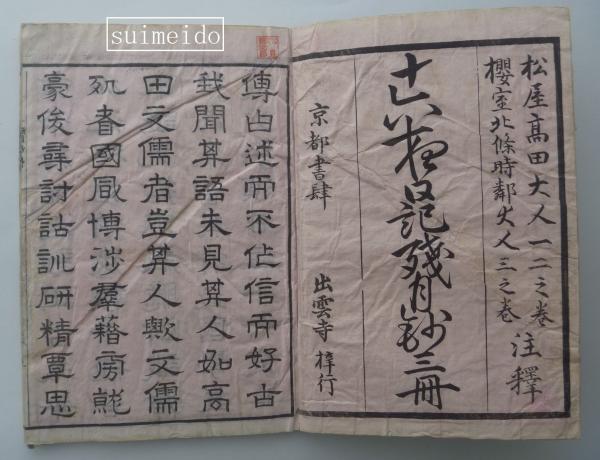 suimeido
松屋高田大人一二之巻
櫻室北條時鄰大人三之巻
注釋
十六夜日記殘月鈔三冊
京都書肆
出雲寺梓行
傳曰述而不作信而好古
我聞其語未見其人如高
田文儒者豈其人歟文儒
夙耆國風博涉羣藉彷能
豪俊尋討詁訓研精覃思